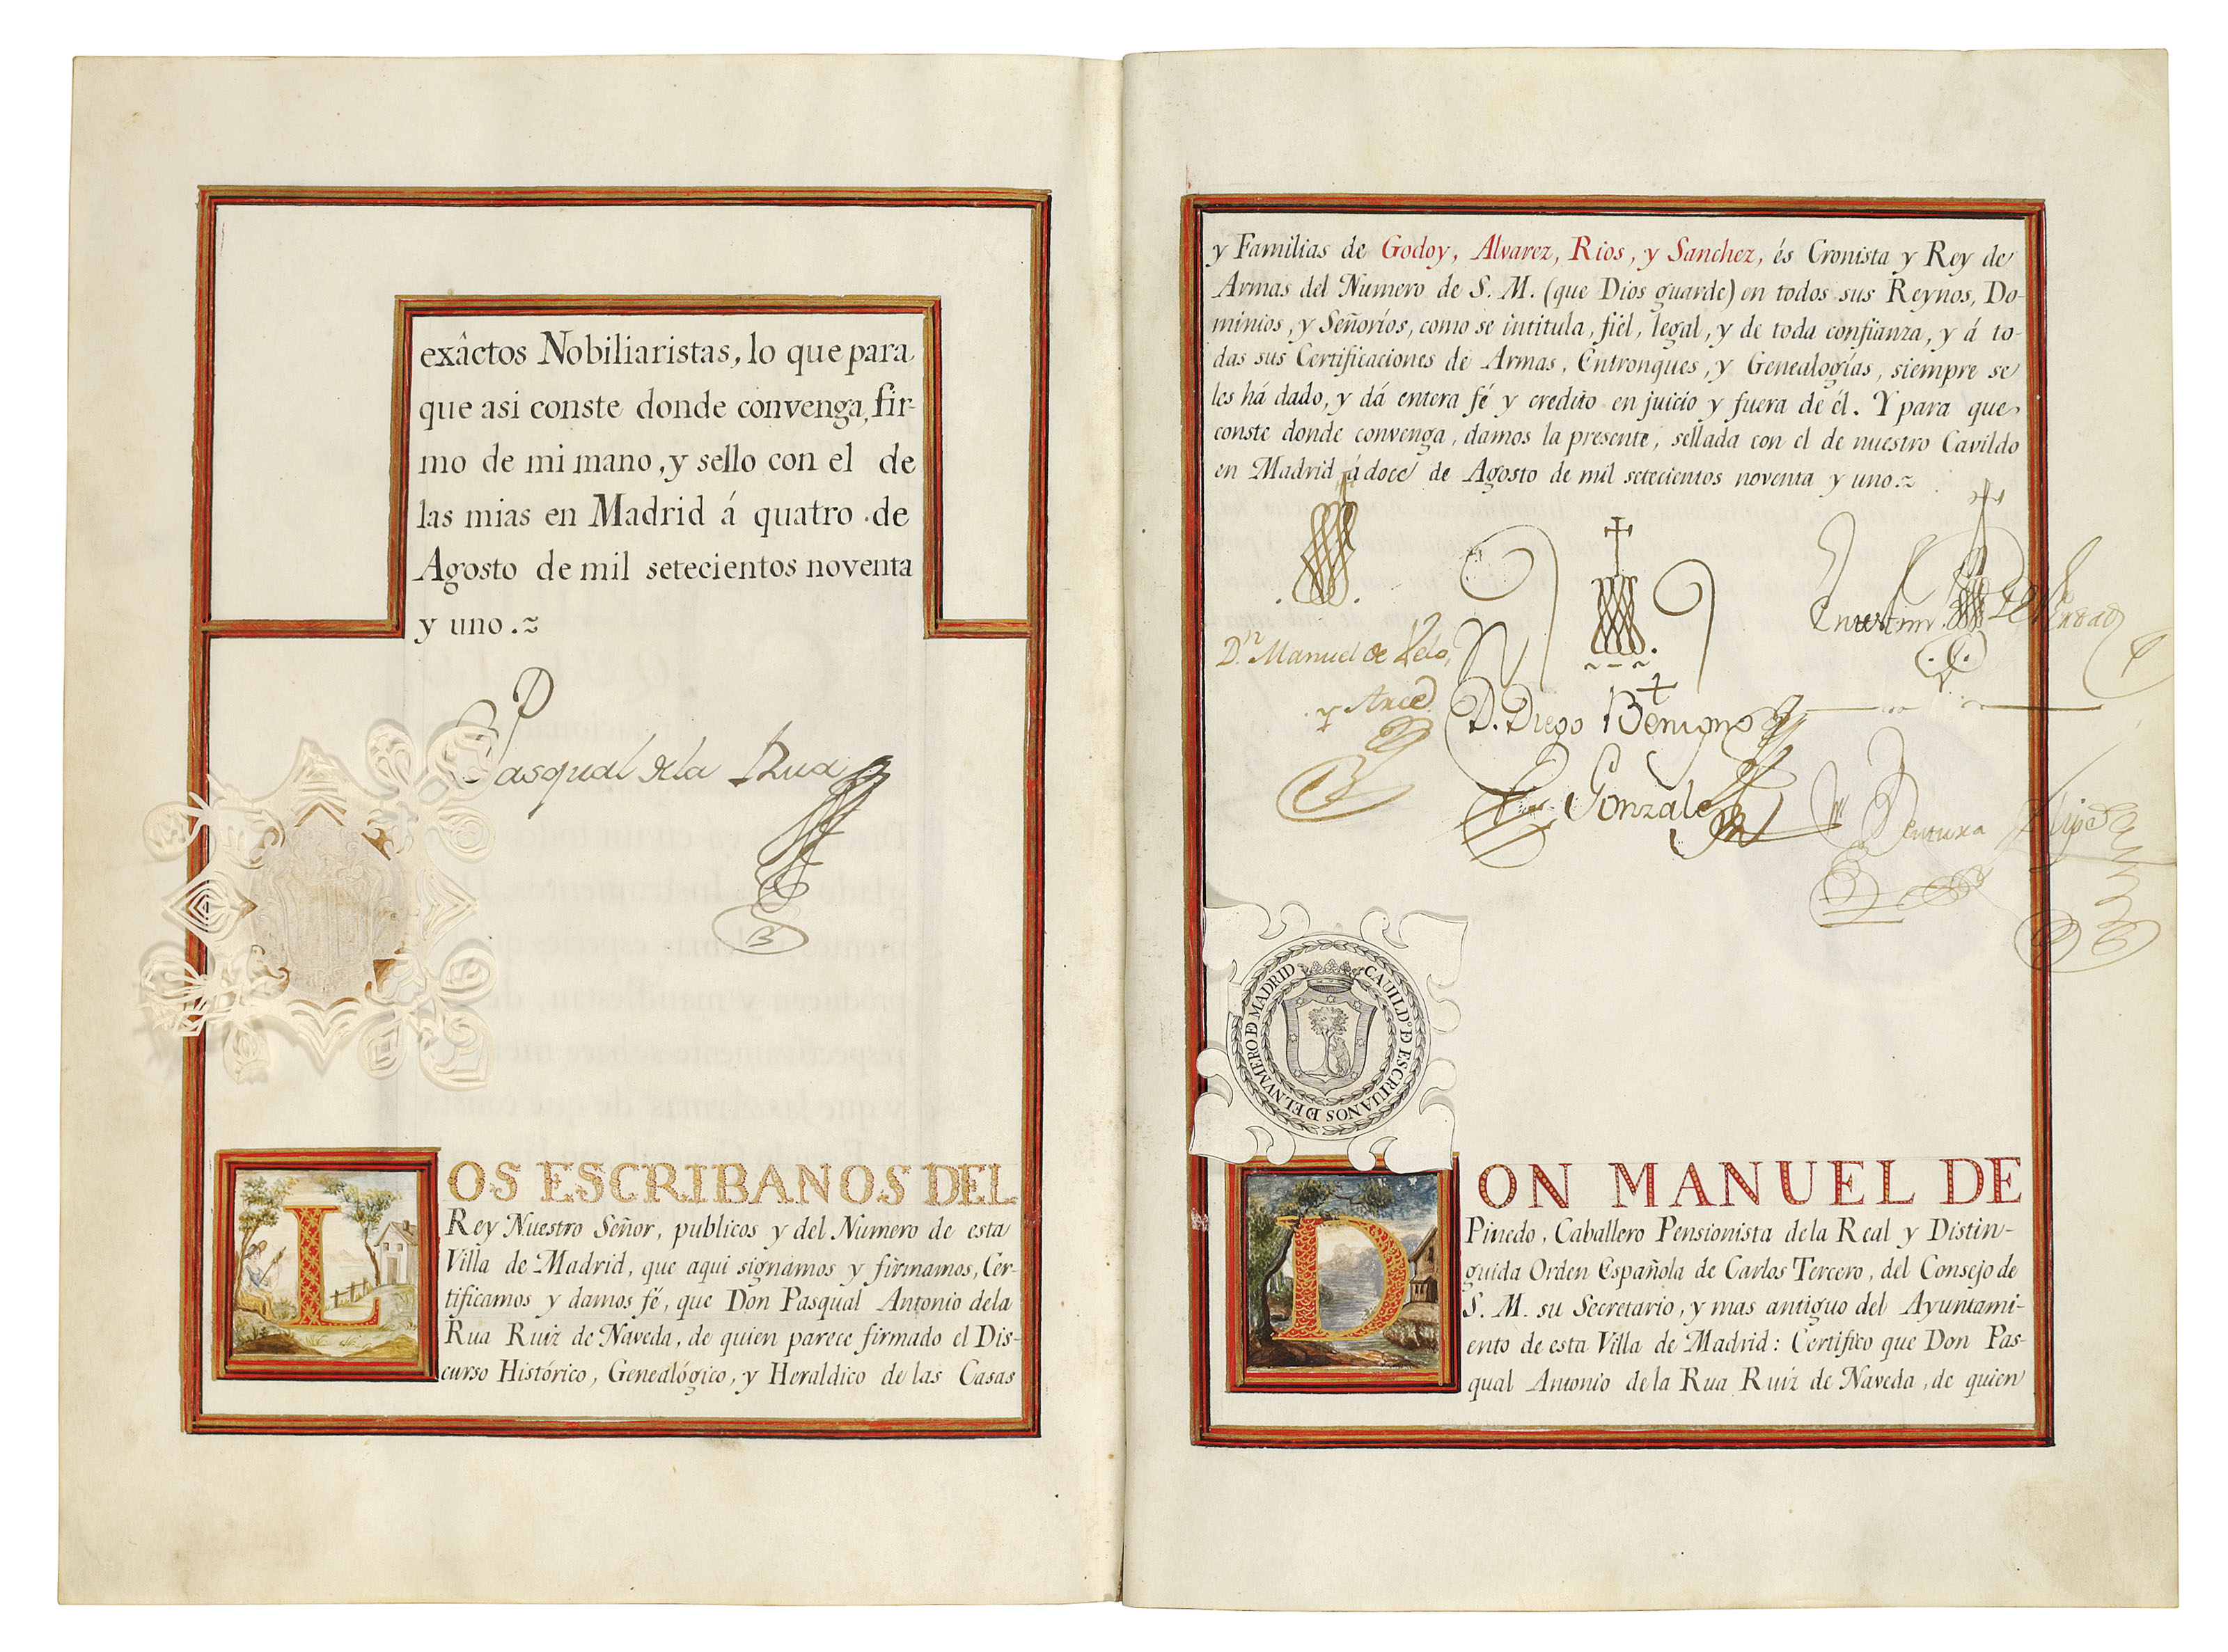 exâctos Nobiliaristas, lo que para
que asi conste donde convenga, fir-
mo de mi mano, y sello con el de
las mias en Madrid á quatro de
Agosto de mil setecientos noventa
y uno.~
Pasqual dela Rua
LOS ESCRIBANOS DEL
Rey Nuestro Señor, publicos y del Número de esta
Villa de Madrid, que aqui signamos y firmamos, Cer-
tificamos y damos fé, que Don Pasqual Antonio dela
Rua Ruiz de Naveda, de quien parece firmado el Dis-
curso Histórico, Genealógico, y Heraldico de las Casas
y Familias de Godoy, Alvarez, Rios, y Sanchez, és Cronista y Rey de
Armas del Numero de S. M. (que Dios guarde) en todos sus Reynos, Do-
minios, y Señoríos, como se intitula, fiel, legal, y de toda confianza, y á to-
das sus Certificaciones de Armas, Entronques, y Genealogías, siempre se
les há dado, y dá entera fé y credito en juicio y fuera de él. Y para que
conste donde convenga, damos la presente, sellada con el de nuestro Cavildo
en Madrid á doce de Agosto de mil setecientos noventa y uno.~
D.n Manuel de
D. Diego Benigno
Gonzalez
Ventura
CAUILD.º D ESCRIUANOS DEL NVMERO D MADRID
DON MANUEL DE
Pinedo, Caballero Pensionista dela Real y Distin-
guida Orden Española de Carlos Tercero, del Consejo de
S. M. su Secretario, y mas antiguo del Ayuntami-
ento de esta Villa de Madrid: Certifico que Don Pas-
qual Antonio dela Rua Ruiz de Naveda, de quien